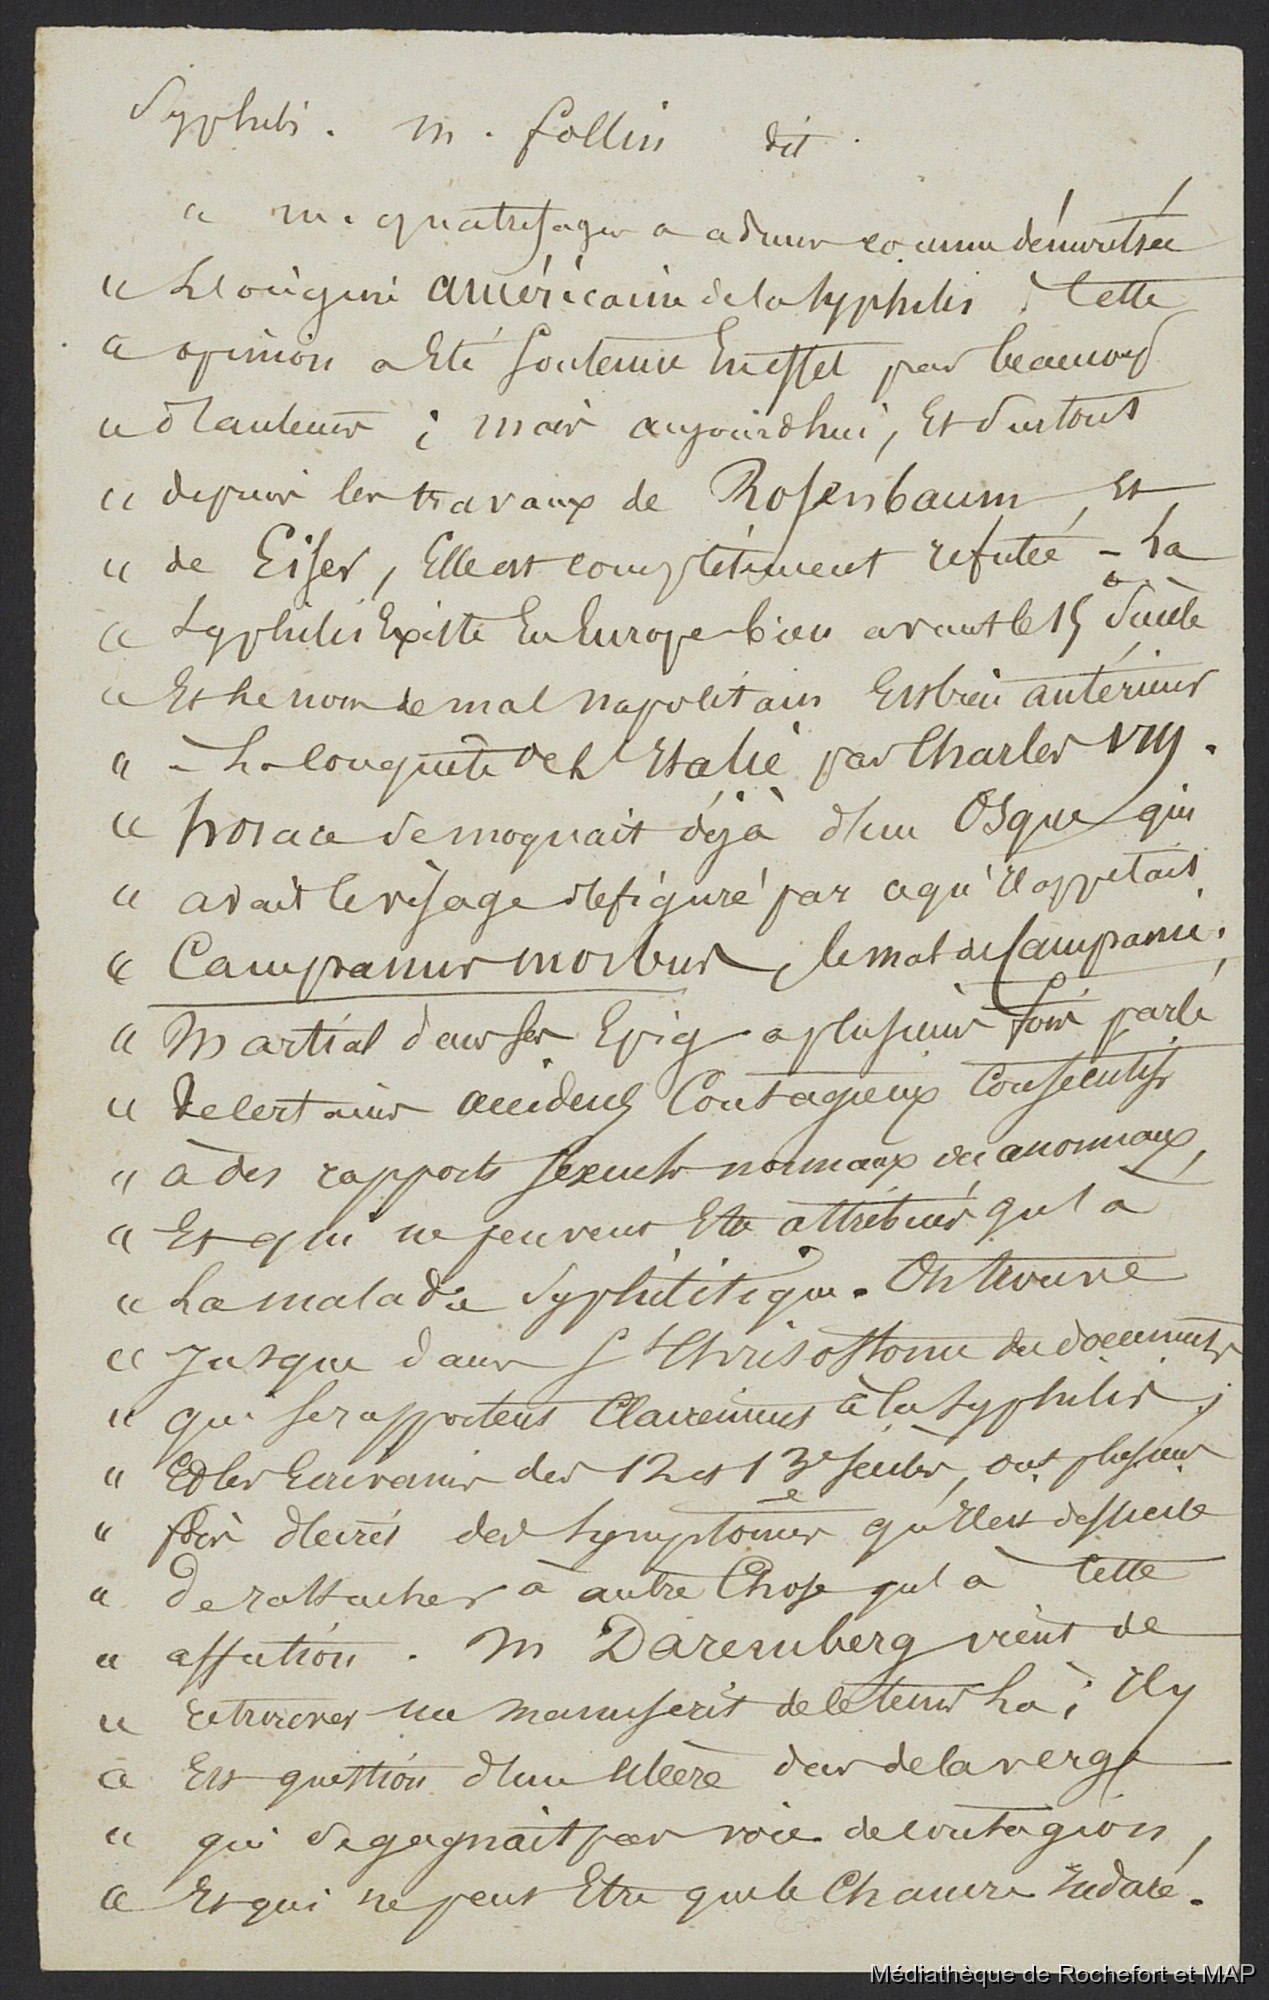 Syphilis. M. Follin dit.
" M. quatrefages a admis comme démontrée
" L'origine américaine de la syphilis. Cette
" opinion a Eté soutenue En effet par beaucoup
" d'auteurs ; mais aujourdhui, Et surtout
" depuis les travaux de Rosenbaum Et
" de Eiser, Elle est complètement réfutée – La
" syphilis Existe En Europe bien avant le 15e Siècle
" Et le nom de mal napolitain Est bien antérieur
" – La conquête de L'Italie par Charles VIII.
" horace se moquait déjà d'un Osque qui
" avait le visage défiguré par ce qu'il appelait
" Campanus morbus, le mal de Campanie.
" Martial dans ses Epig a plusieurs fois parlé
" de certains accidens Contagieux Consécutifs
" à des rapports sexuels normaux ou anormaux,
" Et qui ne peuvent Etre attribués qu'à
" La maladie Syphilitique. On trouve
" Jusque dans St Chrisostome des documents
" qui se rapportent Clairement à la syphilis ;
" Et les Ecrivains des 12 et 13e siècles, ont plusieurs
" fois décrit des symptômes qu'il est difficile
" de rattacher à autre Chose qu'à Cette
" affection. M Daremberg vient de
" retrouver un manuscrit de ce tems La ; Il y
" Est question d'un ulcère dur de la verge
" qui se gagnait par voie de contagion,
" Et qui ne peut Etre que le Chancre Induré.
Médiathèque de Rochefort et MAP